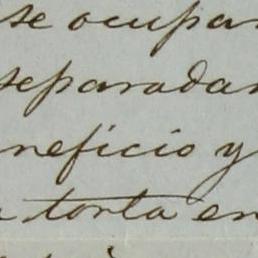 se ocupar
separadar
neficio y
torta en